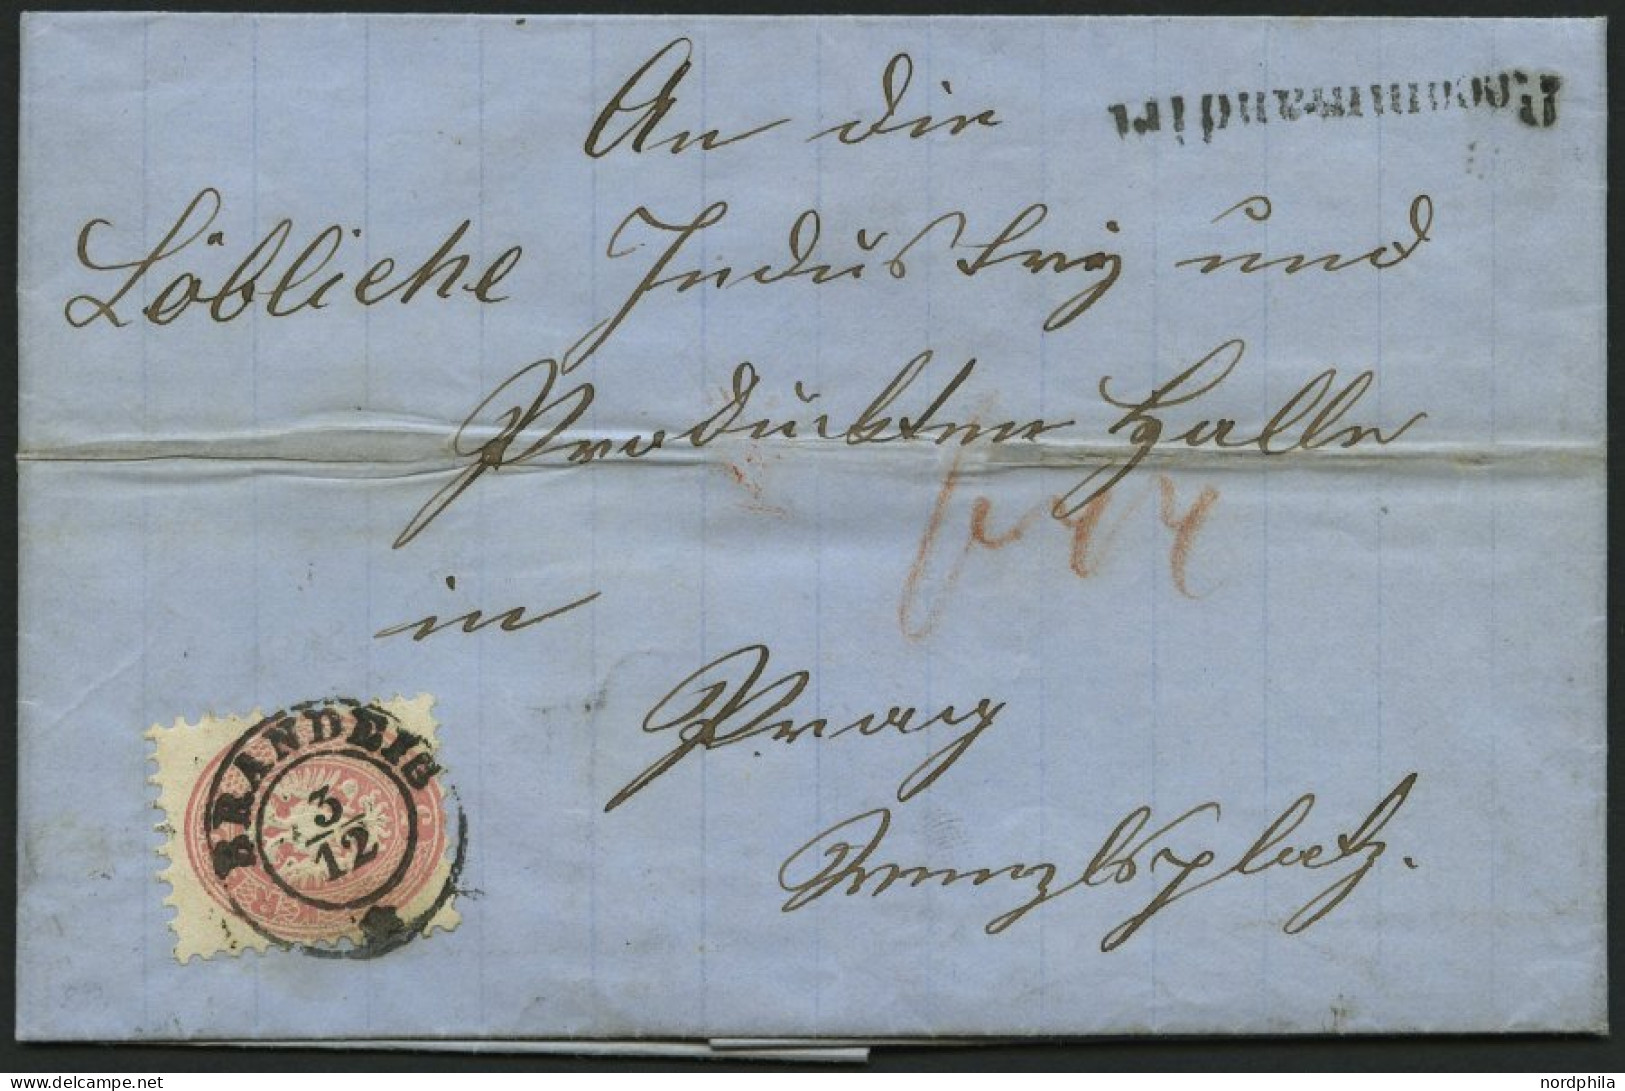 Recommandirt
An die
Löbliche Industrie und
Produkten Halle
in
Prag
Wenzlsplatz.
BRANDEIS
3/12
KR
nordphila